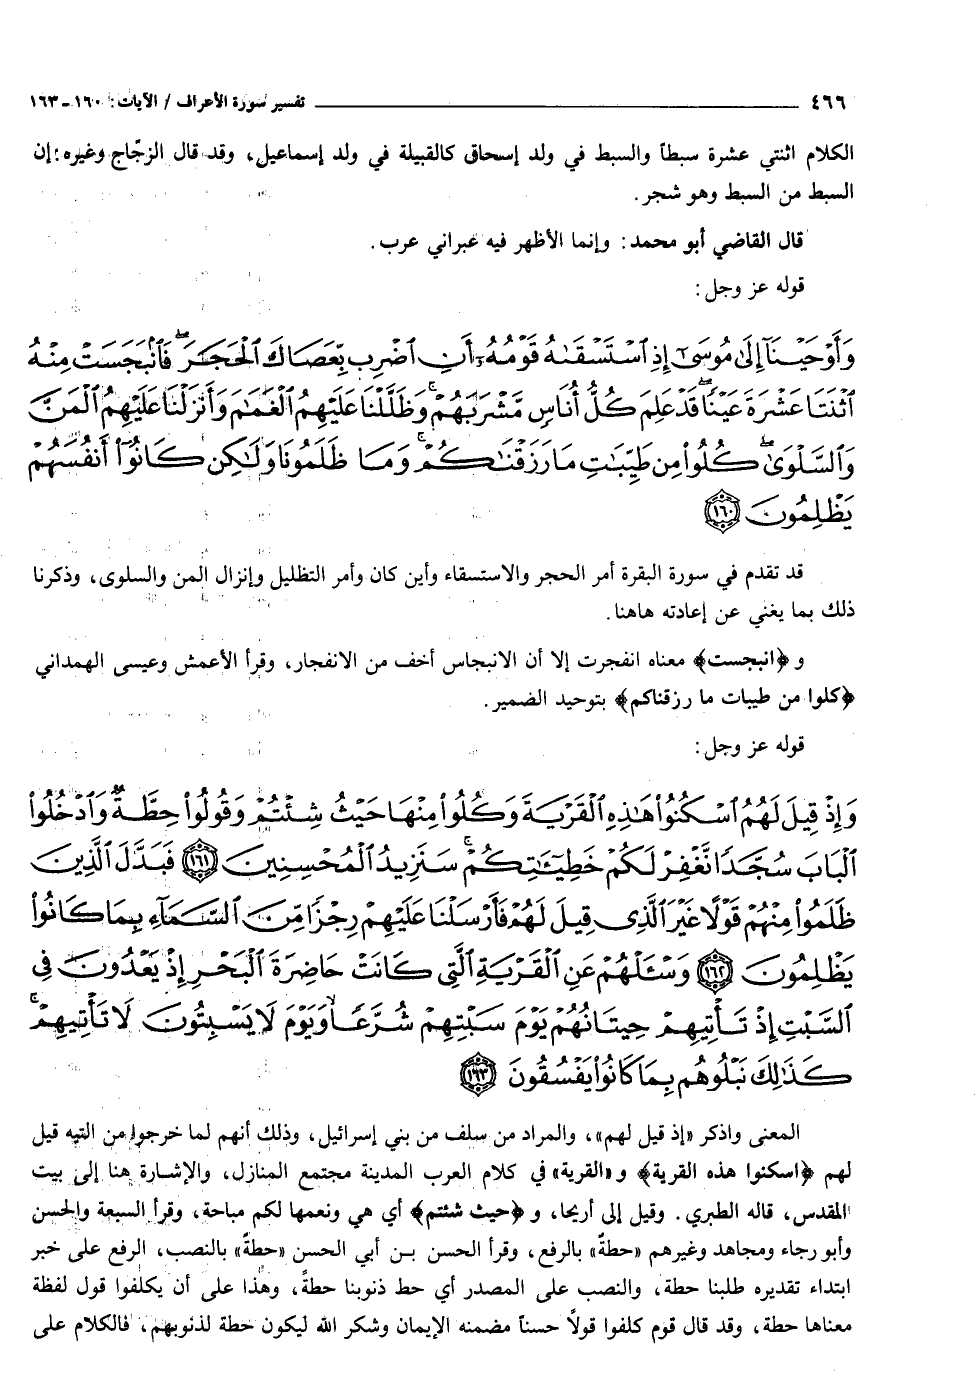 ٤٦٦ ــــــــــ تفسير سورة الأعراف / الآيات: ١٦٠ - ١٦٣
الكلام اثنتي عشرة سبطاً والسبط في ولد إسحاق كالقبيلة في ولد إسماعيل، وقد قال الزجّاج وغيره: إن
السبط من السبط وهو شجر.
قال القاضي أبو محمد: وإنما الأظهر فيه عبراني عرب.
قوله عز وجل:
وَأَوْحَيْنَآ إِلَىٰ مُوسَىٰٓ إِذِ ٱسْتَسْقَىٰهُ قَوْمُهُۥٓ أَنِ ٱضْرِب بِّعَصَاكَ ٱلْحَجَرَۖ فَٱنۢبَجَسَتْ مِنْهُ
ٱثْنَتَا عَشْرَةَ عَيْنًاۖ قَدْ عَلِمَ كُلُّ أُنَاسٍ مَّشْرَبَهُمْۚ وَظَلَّلْنَا عَلَيْهِمُ ٱلْغَمَٰمَ وَأَنزَلْنَا عَلَيْهِمُ ٱلْمَنَّ
وَٱلسَّلْوَىٰۖ كُلُوا۟ مِن طَيِّبَٰتِ مَا رَزَقْنَٰكُمْۚ وَمَا ظَلَمُونَا وَلَٰكِن كَانُوٓا۟ أَنفُسَهُمْ
يَظْلِمُونَ ١٦٠
قد تقدم في سورة البقرة أمر الحجر والاستسقاء وأين كان وأمر التظليل وإنزال المن والسلوى، وذكرنا
ذلك بما يغني عن إعادته هاهنا.
و ﴿انبجست﴾ معناه انفجرت إلا أن الانبجاس أخف من الانفجار، وقرأ الأعمش وعيسى الهمداني
﴿كلوا من طيبات ما رزقناكم﴾ بتوحيد الضمير.
قوله عز وجل:
وَإِذْ قِيلَ لَهُمُ ٱسْكُنُوا۟ هَٰذِهِ ٱلْقَرْيَةَ وَكُلُوا۟ مِنْهَا حَيْثُ شِئْتُمْ وَقُولُوا۟ حِطَّةٌ وَٱدْخُلُوا۟
ٱلْبَابَ سُجَّدًا نَّغْفِرْ لَكُمْ خَطِيٓـَٰٔتِكُمْۚ سَنَزِيدُ ٱلْمُحْسِنِينَ ١٦١ فَبَدَّلَ ٱلَّذِينَ
ظَلَمُوا۟ مِنْهُمْ قَوْلًا غَيْرَ ٱلَّذِى قِيلَ لَهُمْ فَأَرْسَلْنَا عَلَيْهِمْ رِجْزًا مِّنَ ٱلسَّمَآءِ بِمَا كَانُوا۟
يَظْلِمُونَ ١٦٢ وَسْـَٔلْهُمْ عَنِ ٱلْقَرْيَةِ ٱلَّتِى كَانَتْ حَاضِرَةَ ٱلْبَحْرِ إِذْ يَعْدُونَ فِى
ٱلسَّبْتِ إِذْ تَأْتِيهِمْ حِيتَانُهُمْ يَوْمَ سَبْتِهِمْ شُرَّعًا وَيَوْمَ لَا يَسْبِتُونَۙ لَا تَأْتِيهِمْۚ
كَذَٰلِكَ نَبْلُوهُم بِمَا كَانُوا۟ يَفْسُقُونَ ١٦٣
المعنى واذكر «إذ قيل لهم»، والمراد من سلف من بني إسرائيل، وذلك أنهم لما خرجوا من التيه قيل
لهم ﴿اسكنوا هذه القرية﴾ و «القرية» في كلام العرب المدينة مجتمع المنازل، والإشارة هنا إلى بيت
المقدس، قاله الطبري. وقيل إلى أريحا، و ﴿حيث شئتم﴾ أي هي ونعمها لكم مباحة، وقرأ السبعة والحسن
وأبو رجاء ومجاهد وغيرهم «حطةٌ» بالرفع، وقرأ الحسن بن أبي الحسن «حطةً» بالنصب، الرفع على خبر
ابتداء تقديره طلبنا حطة، والنصب على المصدر أي حط ذنوبنا حطةً، وهذا على أن يكلفوا قول لفظة
معناها حطة، وقد قال قوم كلفوا قولاً حسناً مضمنه الإيمان وشكر الله ليكون حطة لذنوبهم، فالكلام على